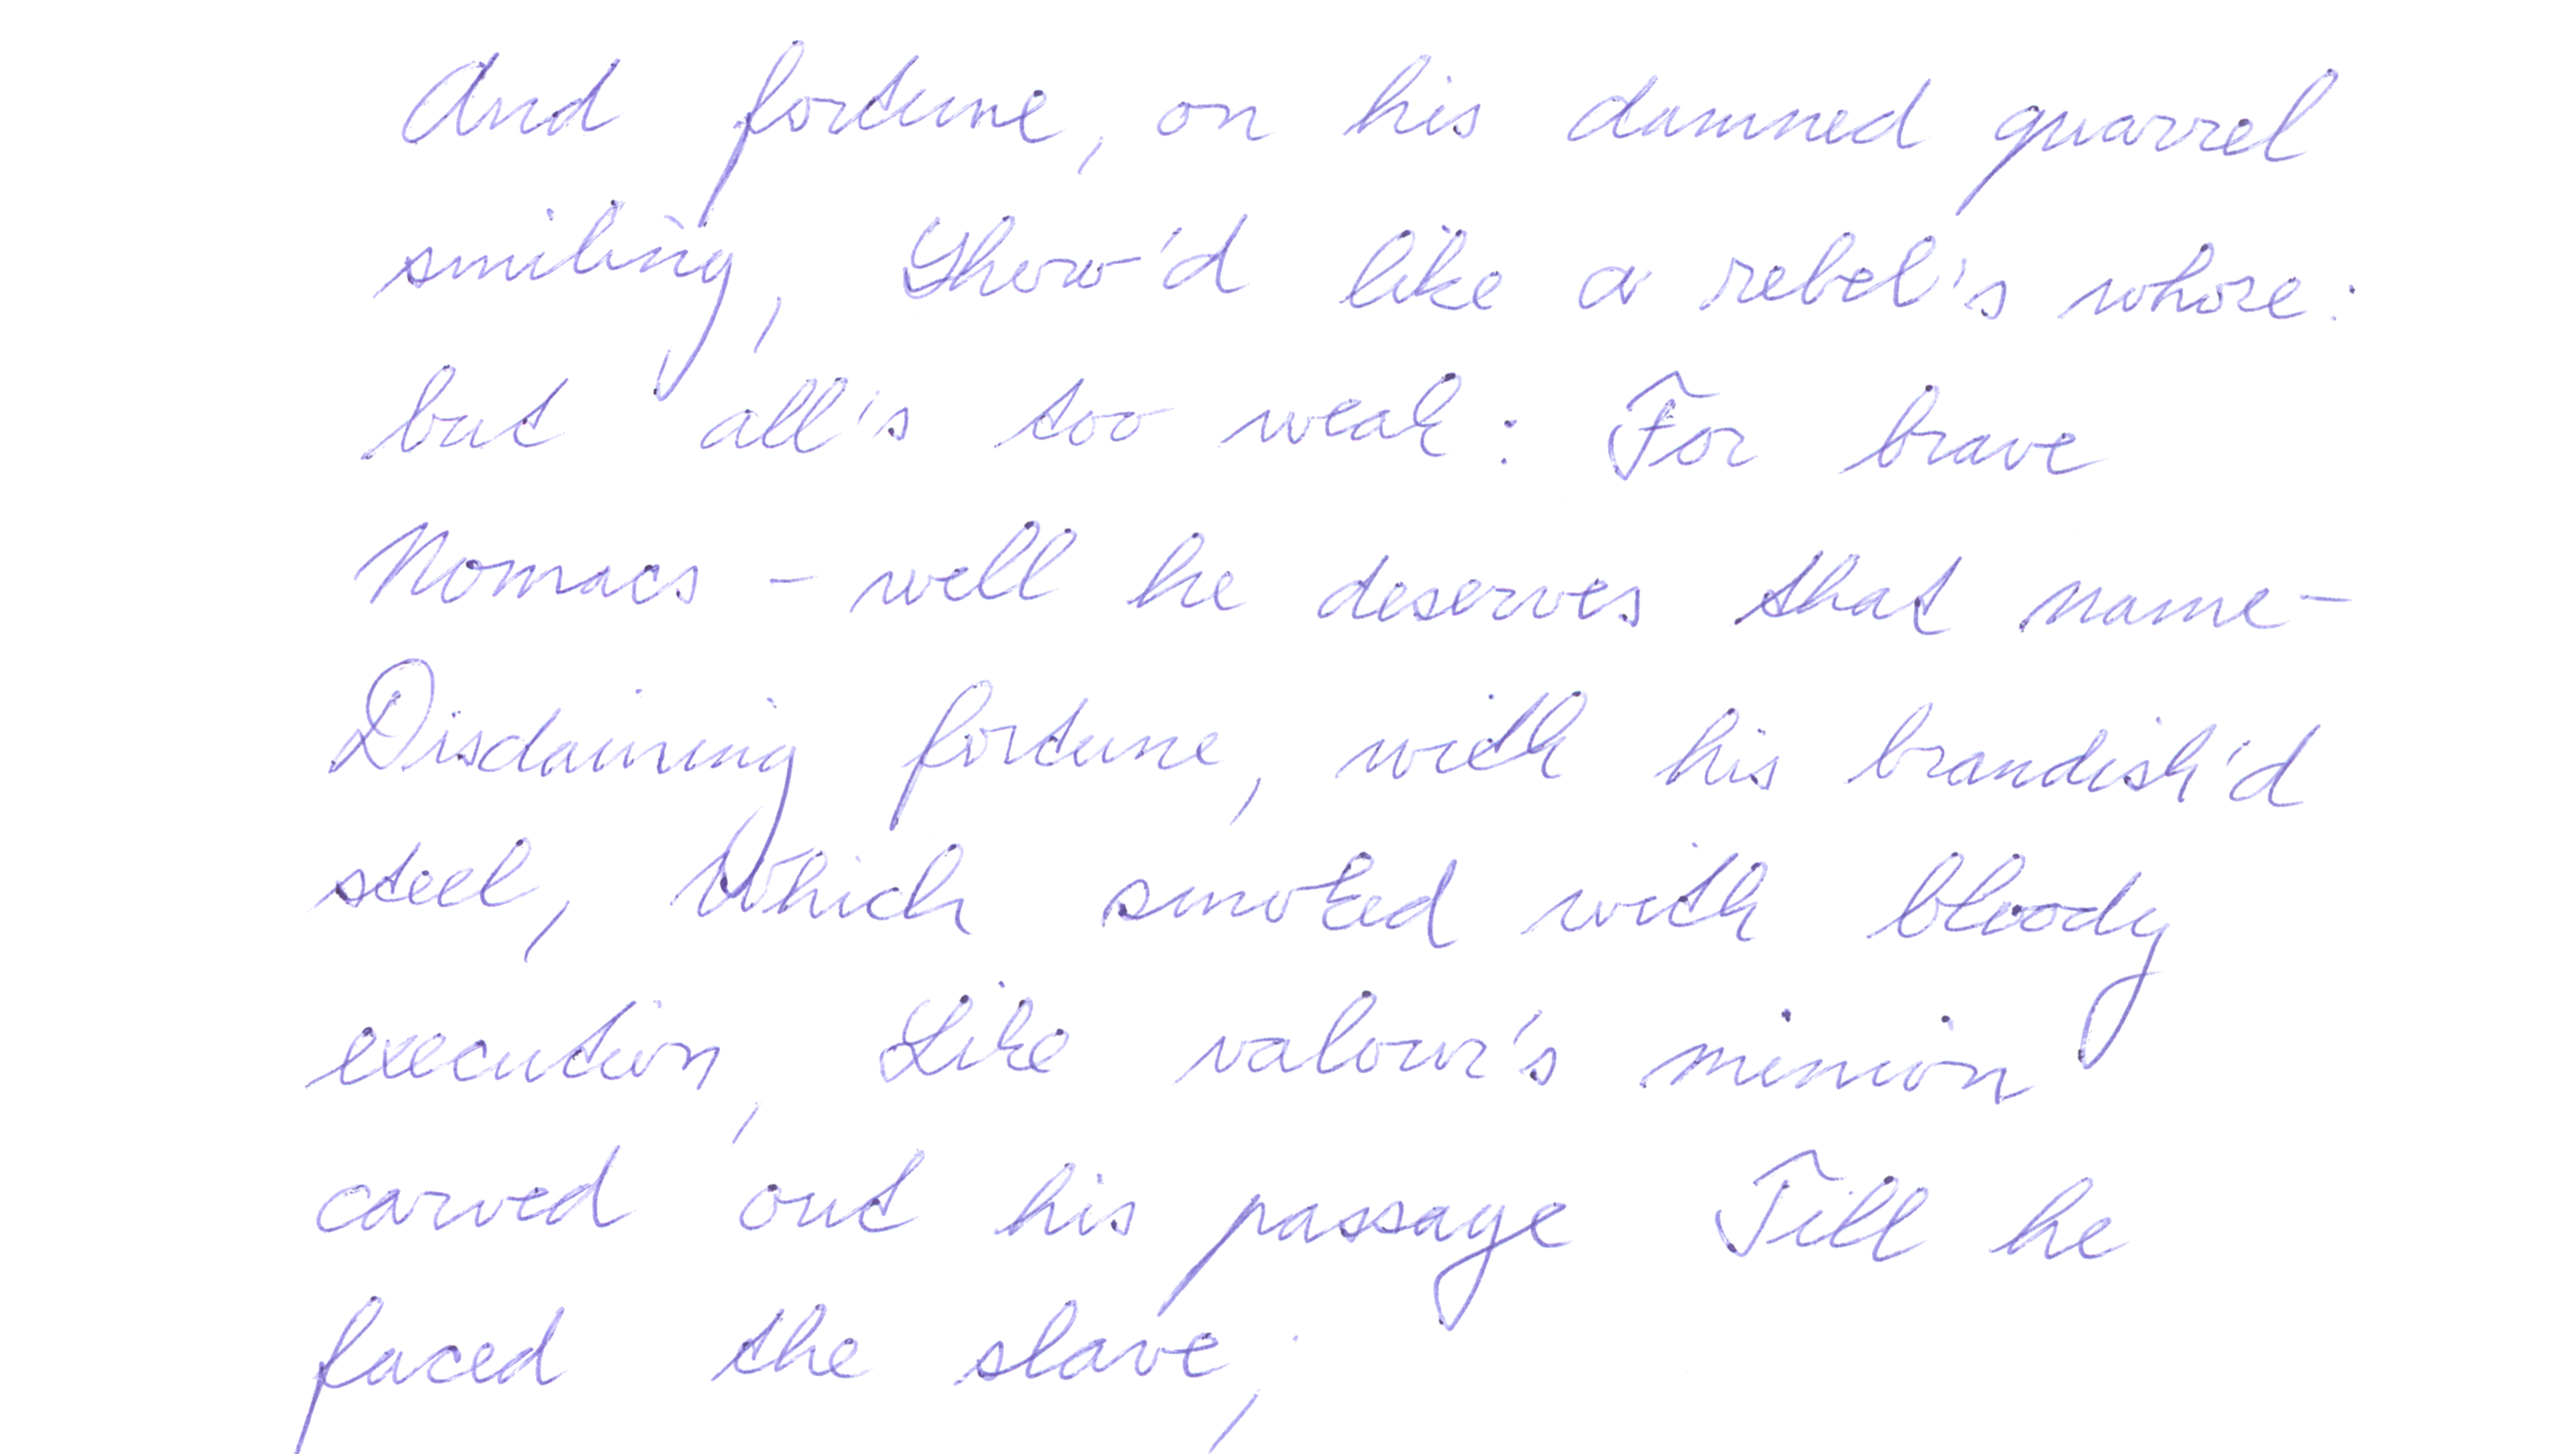 And fortune, on his damned quarrel
smiling, Show'd like a rebel's whore:
but all's too weak: For brave
Nomacs - well he deserves that name-
Disdaining fortune, with his brandish'd
steel, Which smoked with bloody
execution, Like valour's minion
carved out his passage Till he
faced the slave;